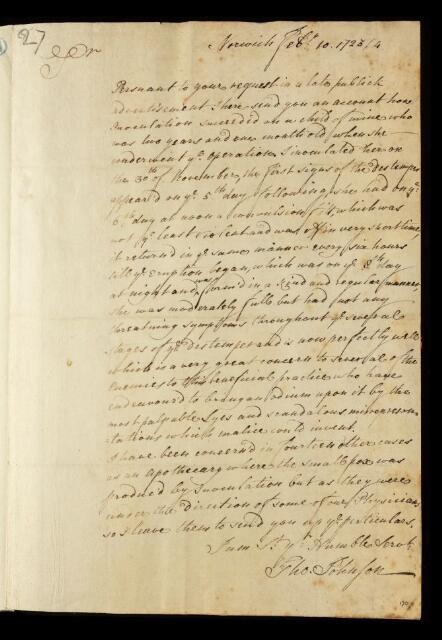 27
Norwich Feb. 10. 1723/4
Sr
Persuant to your request in a late publick
advertisement I here send you an account how
Inoculation succeeded on a child of mine who
was two years and one month old, when she
underwent ye operation, I inoculated her on
the 30th of November, the first signs of the distemper
appear'd on ye 5th day following, she had on ye
6th day at noon a convulsion fit, which was
not ye least violent and was off in very short time,
it returnd in ye same manner every six hours
till ye eruption began, which was on ye 8th day
at night and was form'd in a kind and regular manner
she was moderately full but had not any
threatning symptoms throughout ye several
stages of ye distemper and is now perfectly well
which is a very great concern to several of the
enemies to this beneficial practice who have
endeavour'd to bring an odium upon it by the
most palpable Lyes and scandalous misrepresen
tations which malice could invent.
I have been concern'd in fourteen other cases
as an Apothecary where the small pox was
produced by Inoculation but as they were
under the direction of some of our Physicians
so I leave them to send you up ye perticulars.
I am Sr yr Humble Servt
Tho: Johnson